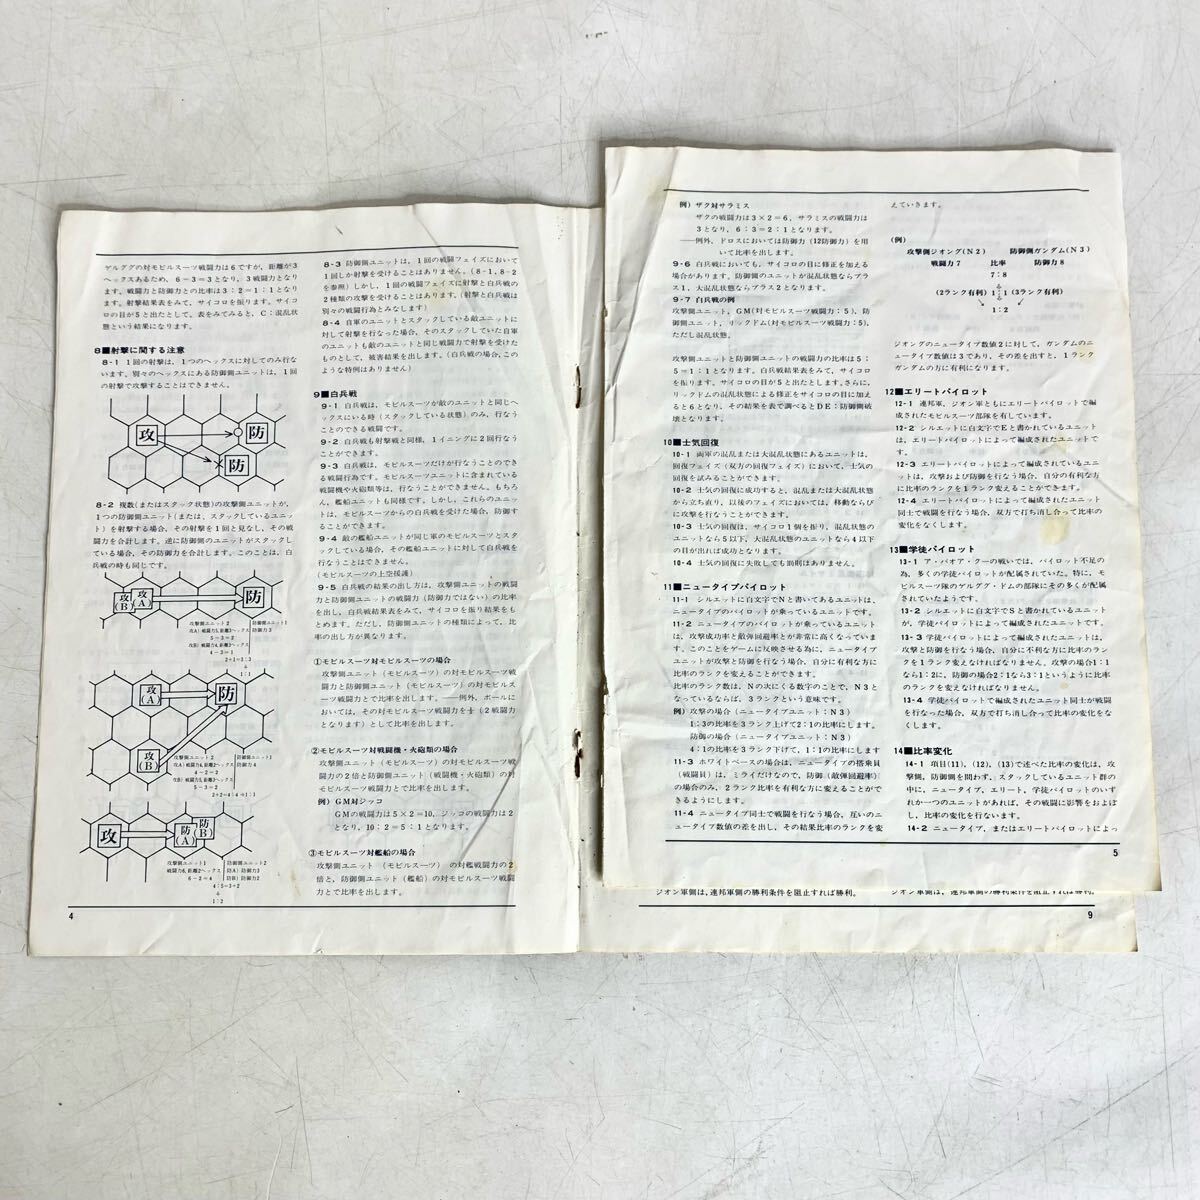 ゲルググの対モビルスーツ戦闘力は6ですが、距離が3
ヘックスあるため、6－3＝3となり、3戦闘力となり
ます。戦闘力と防御力との比率は3：2＝1：1となり
ます。射撃結果表をみて、サイコロを振ります。サイコ
ロの目が5と出たとして、表をみてみると、C：混乱状
態という結果になります。
8■射撃に関する注意
8-1 1回の射撃は、1つのヘックスに対してのみ行な
います。別々のヘックスにある防御側ユニットは、1回
の射撃で攻撃することはできません。
攻
防
防
8-2 複数(またはスタック状態)の攻撃側ユニットが、
1つの防御側ユニット(または、スタックしているユニッ
ト)を射撃する場合、その射撃を1回と見なし、その戦
闘力を合計します。逆に防御側のユニットがスタックし
ている場合、その防御力を合計します。このことは、白
兵戦の時も同じです。
攻(B)
攻(A)
防
攻撃側ユニット2
防御側ユニット1
攻A) 戦闘力5,距離3ヘックス
防御力3
5－3＝2
攻B) 戦闘力4,距離3ヘックス
4－3＝1
2＋1＝3：3
1：1
攻(A)
防
攻(B)
攻撃側ユニット2
防御側ユニット1
攻A) 戦闘力4,距離2ヘックス
防御力4
4－2＝2
攻B) 戦闘力5,距離3ヘックス
5－3＝2
2＋2＝4：4＝1：1
攻
防(A)
防(B)
攻撃側ユニット1
防御側ユニット2
戦闘力6,距離2ヘックス
防A) 防御力3
6－2＝4
防B) 防御力2
4：5＝3＋2
1：2
4
8-3 防御側ユニットは、1回の戦闘フェイズにおいて
1回しか射撃を受けることはありません。(8-1、8-2
を参照) しかし、1回の戦闘フェイズに射撃と白兵戦の
2種類の攻撃を受けることはあります。(射撃と白兵戦は
別々の戦闘行為とみなします)
8-4 自軍のユニットとスタックしている敵ユニットに
対して射撃を行なった場合、そのスタックしていた自軍
のユニットも敵のユニットと同じ戦闘力で射撃を受けた
ものとして、被害結果を出します。(白兵戦の場合、この
ような特例はありません)
9■白兵戦
9-1 白兵戦は、モビルスーツが敵のユニットと同じヘ
ックスにいる時(スタックしている状態)のみ、行なう
ことのできる戦闘です。
9-2 白兵戦も射撃戦と同様、1イニングに2回行なう
ことができます。
9-3 白兵戦は、モビルスーツだけが行なうことのでき
る戦闘行為です。モビルスーツユニットに含まれている
戦闘機や火砲類等は、行なうことができません。もちろ
ん、艦船ユニットも同様です。しかし、これらのユニッ
トは、モビルスーツからの白兵戦を受けた場合、防御す
ることができます。
9-4 敵の艦船ユニットが同じ軍のモビルスーツとスタ
ックしている場合、その艦船ユニットに対して白兵戦を
行なうことはできません。
(モビルスーツの上空援護)
9-5 白兵戦の結果の出し方は、攻撃側ユニットの戦闘
力と防御側ユニットの戦闘力(防御力ではない)の比率
を出し、白兵戦結果表をみて、サイコロを振り結果をも
とめます。ただし、防御側ユニットの種類によって、比
率の出し方が異なります。
①モビルスーツ対モビルスーツの場合
攻撃側ユニット(モビルスーツ)の対モビルスーツ戦
闘力と防御側ユニット(モビルスーツ)の対モビルス
ーツ戦闘力とで比率を出します。――例外、ボールに
おいては、その対モビルスーツ戦闘力を½ (2戦闘力
となります)として比率を出します。
②モビルスーツ対戦闘機・火砲類の場合
攻撃側ユニット(モビルスーツ)の対モビルスーツ戦
闘力の2倍と防御側ユニット(戦闘機・火砲類)の対
モビルスーツ戦闘力とで比率を出します。
例) GM対ジッコ
GMの戦闘力は5×2＝10、ジッコの戦闘力は2
となり、10：2＝5：1となります。
③モビルスーツ対艦船の場合
攻撃側ユニット (モビルスーツ) の対艦戦闘力の2
倍と、防御側ユニット(艦船)の対モビルスーツ戦闘
力とで比率を出します。
例) ザク対サラミス
ザクの戦闘力は3×2＝6、サラミスの戦闘力は
3となり、6：3＝2：1となります。
――例外、ドロスにおいては防御力(12防御力)を用
いて比率を出します。
9-6 白兵戦においても、サイコロの目に修正を加える
場合があります。防御側のユニットが混乱状態ならプラ
ス1、大混乱状態ならプラス2となります。
9-7 白兵戦の例
攻撃側ユニット、GM(対モビルスーツ戦闘力：5)、防
御側ユニット、リックドム(対モビルスーツ戦闘力：5)、
ただし混乱状態。
攻撃側ユニットと防御側ユニットの戦闘力の比率は5：
5＝1：1となります。白兵戦結果表をみて、サイコロ
を振ります。サイコロの目が5と出たとします。さらに、
リックドムの混乱状態による修正をサイコロの目に加え
ると6となり、その結果を表で調べるとDE：防御側破
壊となります。
10■士気回復
10-1 両軍の混乱または大混乱状態にあるユニットは、
回復フェイズ(双方の回復フェイズ)において、士気の
回復を試みることができます。
10-2 士気の回復に成功すると、混乱または大混乱状態
から立ち直り、以後のフェイズにおいては、移動ならび
に攻撃を行なうことができます。
10-3 士気の回復は、サイコロ1個を振り、混乱状態の
ユニットなら5以下、大混乱状態のユニットなら4以下
の目が出れば成功となります。
10-4 士気の回復に失敗しても罰則はありません。
11■ニュータイプパイロット
11-1 シルエットに白文字でNと書いてあるユニットは、
ニュータイプのパイロットが乗っているユニットです。
11-2 ニュータイプのパイロットが乗っているユニット
は、攻撃成功率と敵弾回避率とが非常に高くなっていま
す。このことをゲームに反映させる為に、ニュータイプ
ユニットが攻撃と防御を行なう場合、自分に有利な方に
比率のランクを変えることができます。
比率のランク数は、Nの次にくる数字のことで、N3と
なっているならば、3ランクという意味です。
例) 攻撃の場合 (ニュータイプユニット：N3)
1：3の比率を3ランク上げて2：1の比率にします。
防御の場合 (ニュータイプユニット：N3)
4：1の比率を3ランク下げて、1：1の比率にします
11-3 ホワイトベースの場合は、ニュータイプの搭乗員
(戦闘員)は、ミライだけなので、防御(敵弾回避率)
の場合のみ、2ランク比率を有利な方に変えることがで
きるようにします。
11-4 ニュータイプ同士で戦闘を行なう場合、互いのニ
ュータイプ数値の差を出し、その結果比率のランクを変
えていきます。
(例)
攻撃側ジオング(N2) 防御側ガンダム(N3)
戦闘力7 比率 防御力8
7：8
(2ランク有利) 1：1 (3ランク有利)
1：2
ジオングのニュータイプ数値2に対して、ガンダムのニ
ュータイプ数値は3であり、その差を出すと、1ランク
ガンダムの方に有利になります。
12■エリートパイロット
12-1 連邦軍、ジオン軍ともにエリートパイロットで編
成されたモビルスーツ部隊を有しています。
12-2 シルエットに白文字でEと書かれているユニット
は、エリートパイロットによって編成されたユニットで
す。
12-3 エリートパイロットによって編成されているユニ
ットは、攻撃および防御を行なう場合、自分の有利な方
に比率のランクを1ランク変えることができます。
12-4 エリートパイロットによって編成されたユニット
同士で戦闘を行なう場合、双方で打ち消し合って比率の
変化をなくします。
13■学徒パイロット
13-1 ア・バオア・クーの戦いでは、パイロット不足の
為、多くの学徒パイロットが配属されていた。特に、モ
ビルスーツ隊のゲルググ・ドムの部隊にその多くが配属
されていたようです。
13-2 シルエットに白文字でSと書かれているユニット
が、学徒パイロットによって編成されたユニットです。
13-3 学徒パイロットによって編成されたユニットは、
攻撃と防御を行なう場合、自分に不利な方に比率のラン
クを1ランク変えなければなりません。攻撃の場合1：1
なら1：2に、防御の場合2：1なら3：1というように比率
のランクを変えなければなりません。
13-4 学徒パイロットで編成されたユニット同士が戦闘
を行なった場合、双方で打ち消し合って比率の変化をな
くします。
14■比率変化
14-1 項目(11)、(12)、(13)で述べた比率の変化は、攻
撃側、防御側を問わず、スタックしているユニット群の
中に、ニュータイプ、エリート、学徒パイロットのいず
れか一つのユニットがあれば、その戦闘に影響をおよぼ
し、比率の変化を行ないます。
14-2 ニュータイプ、またはエリートパイロットによっ
5
ジオン軍側は、連邦軍側の勝利条件を阻止すれば勝利。
ジオン軍側は、連邦軍側の勝利条件を阻止すれば勝利。
9